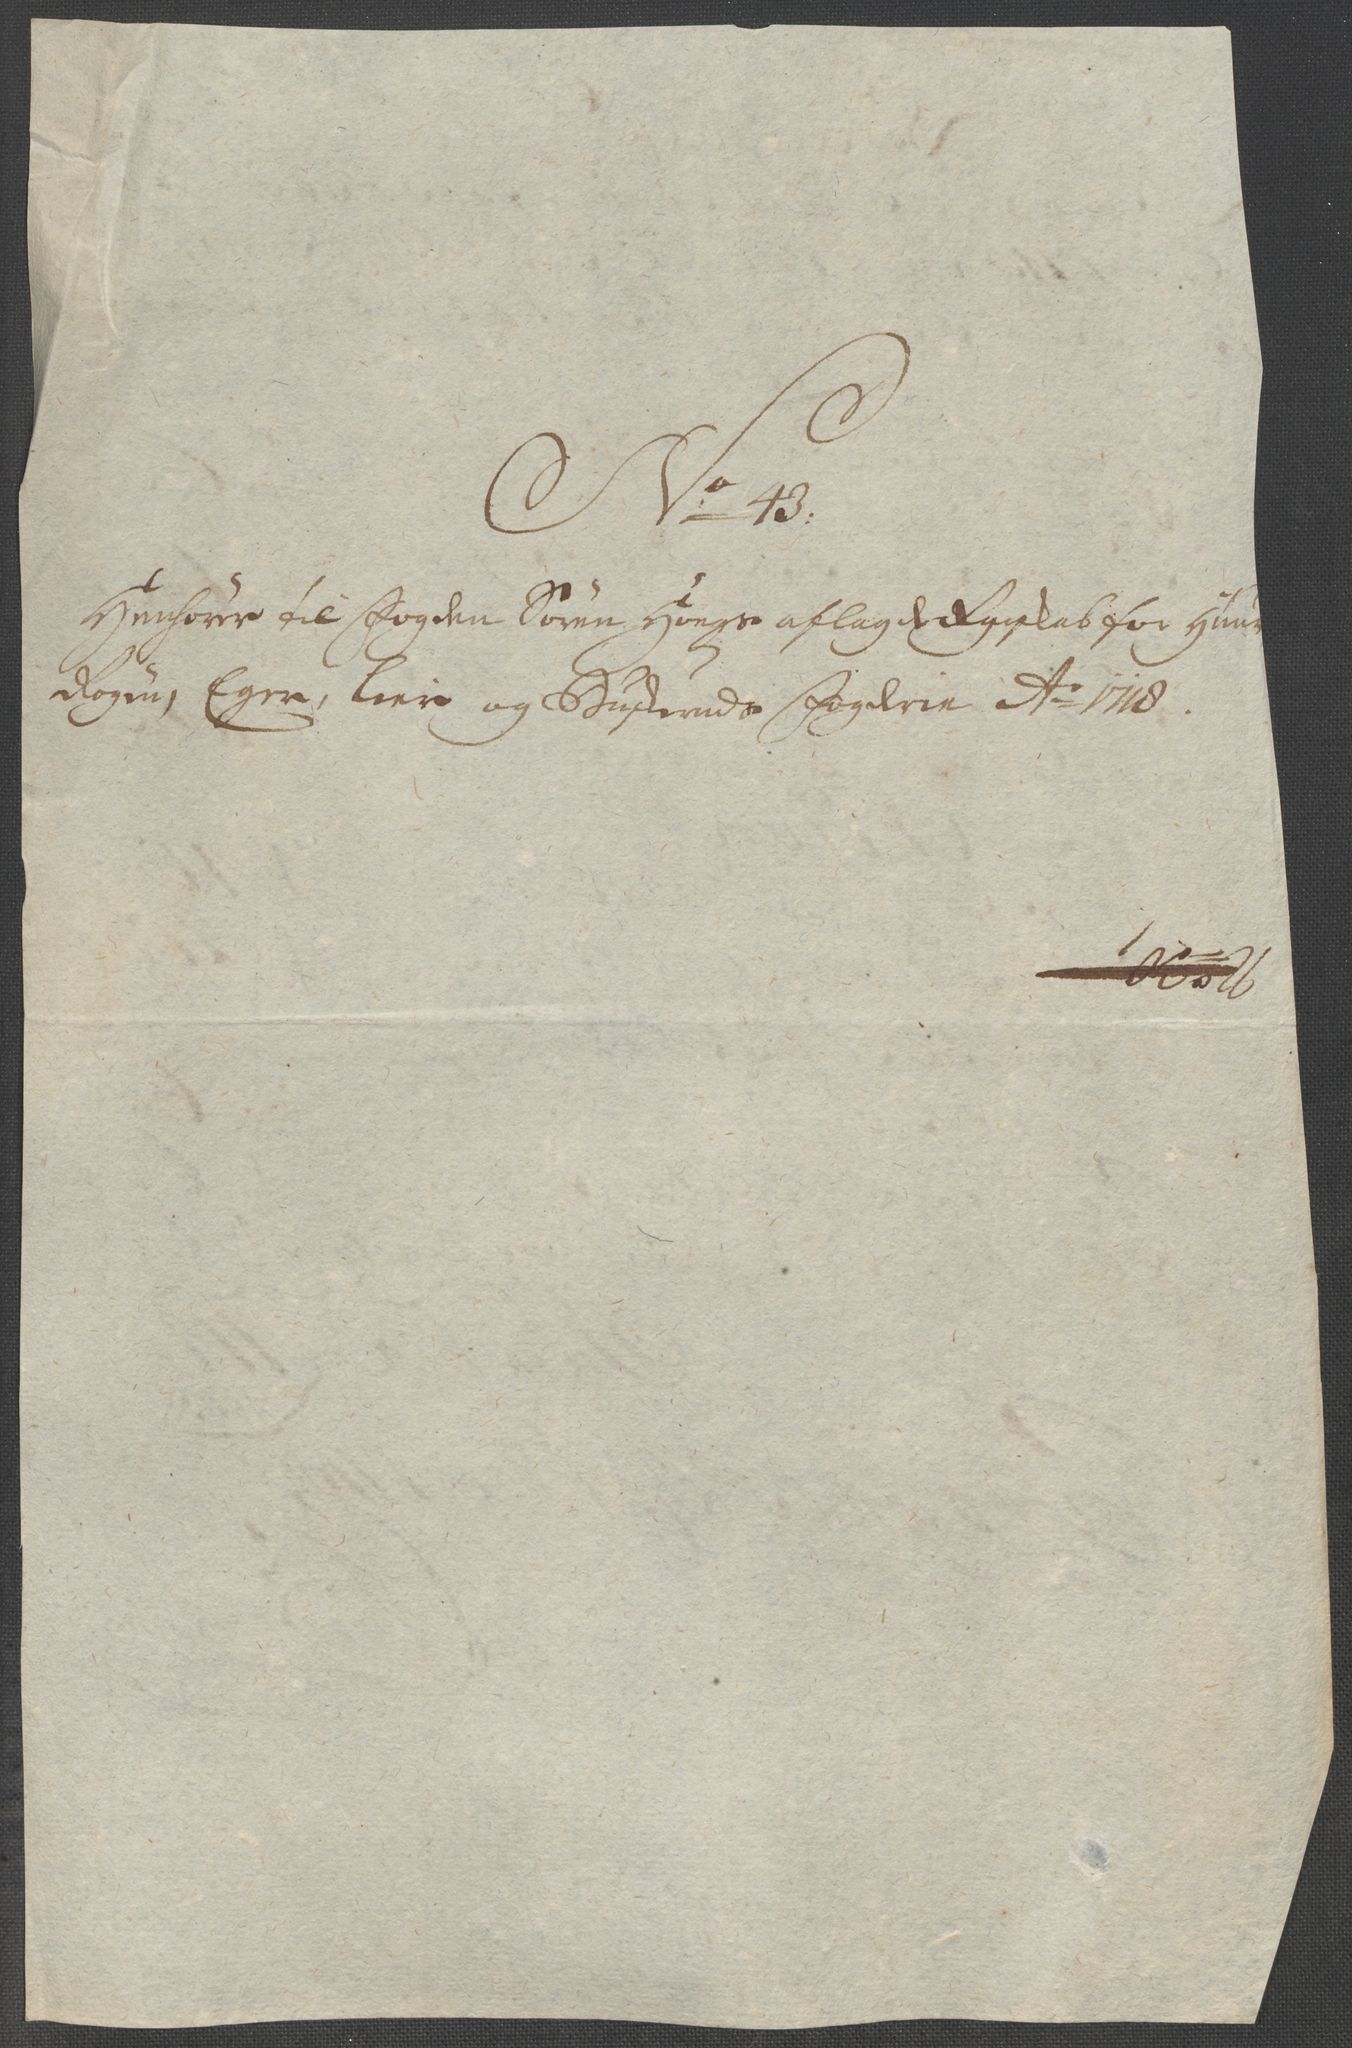 No 43:
Henhører til Fogden Søren Høegs aflagde Regnskab for Huru
Røgen, Eger, Lier og Buskeruds Fogderie Ao 1718.